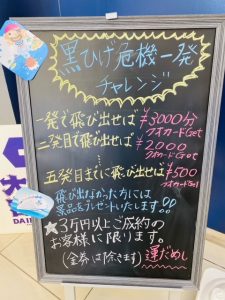 黒ひげ危機一発
チャレンジ
一発で飛び出せば ¥3000分
クオカードGet
二発目で飛び出せば ¥2000
クオカードGet
五発目までに飛び出せば ¥500
クオカードGet
飛び出なかった方には
景品をプレゼントいたします!!
★3万円以上ご成約の
お客様に限ります。
(金券は除きます) 運だめし
大
DAI